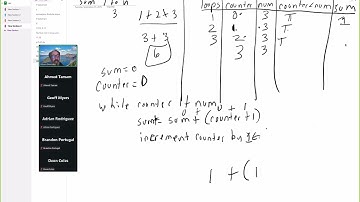 sum 1 to n
3
1+2+3
3+3
6
loops counter num counter<num sum
1 0 3 T 1
2 1 3 T
3 2 3 T
3 3
sum=0
counter=0
while counter < num
0 + 1
sum = sum + (counter+1)
increment counter by 1
1 + (1
Ahmad Tamam
Geoff Myers
Adrian Rodriguez
Brandon Portugal
Dean Coles